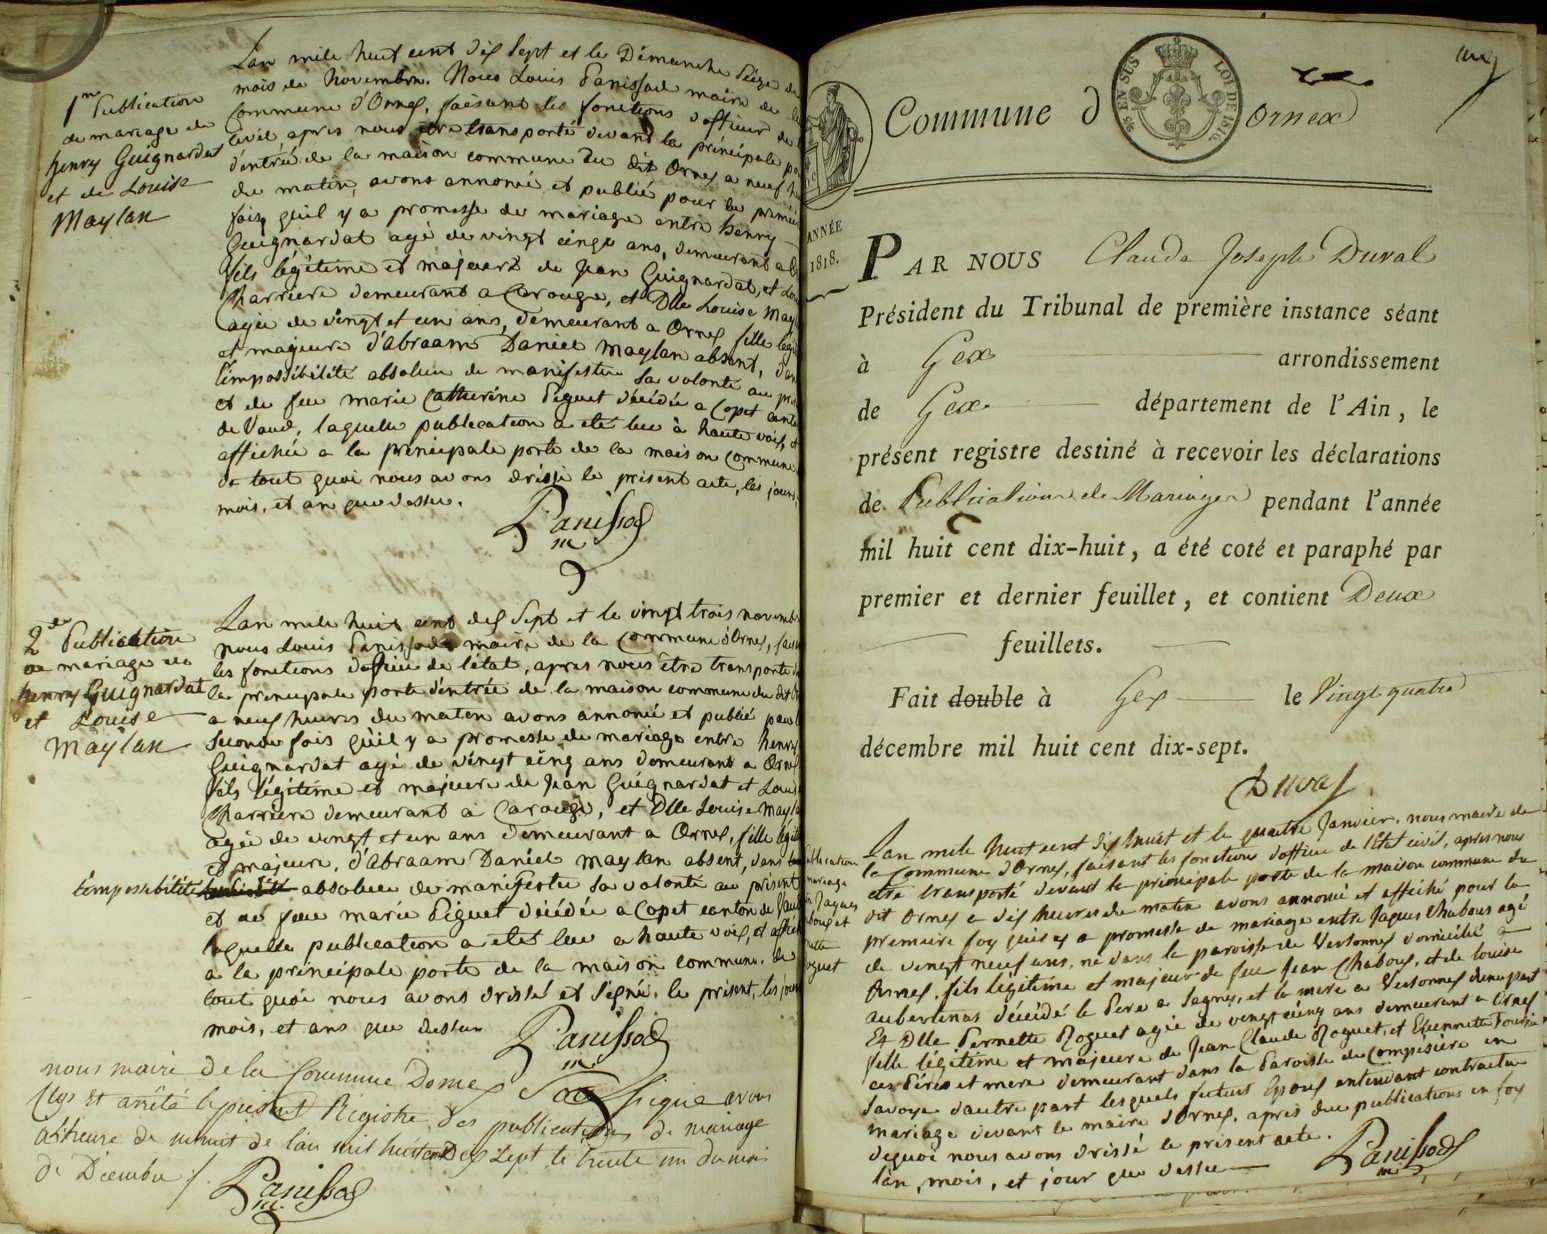 1re Publication
de mariage de
henry Guignardat
et de Louise
Maylan
Lan mile huit cent dix Sept et le Démanche Séize du
mois de Novembre. Nous Louis Panissod maire de la
Commune d'Ornex, faisant les fonctions d'officier de
Civil apres nous être transporté devant la principale
d'entrée de la maison commune du dit Ornex a neuf
du matin, avons annoncé et publié pour la premiere
fois, quil y a promesse de mariage entre henry
Guignardat agé de vingt cinq ans, demeurant a
fils légitime et majeur de Jean Guignardat, et
Charriere demeurant a Carouge, et Dlle Louise May
agée de vingt et un ans, demeurant a Ornex fille
et majeure d'abraam Daniel Maylan absent, dans
l'impossibilité absolue de manifester sa volonté au
et de feu marie Catherine Piguet décédée a Copet
de Vaud, laquelle publication a été lue à haute voix, et
affichée a la principale porte de la maison commune.
de tout quoi nous avons dréssé le présent acte, les jours,
mois, et an que dessus.
Panissod
m
2de Publication
de mariage de
henry Guignardat
et Louise
Maylan
Lan mile huit cent dix Sept et le vingt trois novembre
nous Louis Panissod maire de la Commune d'Ornex,
les fonctions d'officier de létat, apres nous être transporté
la principale porte d'entrée de la maison commune du dit
a neuf heures du maten avons annoncé et publié pour
seconde fois quil y a promesse de mariage entre henry
Guignardat agé de vingt cinq ans demeurant a Ornex
fils légitime et majeur de Jean Guignardat et
Charriere demeurant a Carouge, et Dlle Louise Mayla
agée de vingt et un ans demeurant a Ornex, fille
et majeure, d'abraam Daniel Maylan absent, dans
l'impossibilité absolue de manifester sa volonté au présent
et de feu marie Piguet décédée a Copet canton de Vaud
laquelle publication a été lue a haute voix, et
à la principale porte de la maison commune. de
tout quoi nous avons dréssé et signé, le présent, les jour
mois, et ans que dessus
Panissod
m
nous maire de la Commune Dornex Sous signé avons
Clos et arrêté le présent Registre des publications de mariage
a l'heure de minuit de l'an mil huit cent Dix Sept le trente un du moi
de Décembre /.
Panissod
m
Commune d
Ornex
25 EN SUS
LOI DE 1816.
ANNÉE
1818.
PAR NOUS Claude Joseph Duval
Président du Tribunal de première instance séant
à Gex arrondissement
de Gex département de l'Ain, le
présent registre destiné à recevoir les déclarations
de Publications de Mariages pendant l'année
mil huit cent dix-huit, a été coté et paraphé par
premier et dernier feuillet, et contient Deux
feuillets.
Fait double à Gex le Vingt quatre
décembre mil huit cent dix-sept.
Duval
Publication
mariage
de Jaques
Chabous et
nette
Roguet
Lan mile huit cent dix huit et le quatre Janvier. nous maire de
la Commune d'Ornex, faisant les fonctions d'officier de létat civil, apres nous
être transporté devant la principale porte de la maison commune du
dit Ornex a dix heures du maten avons annoncé et affiché pour la
premiere foy quil y a promesse de mariage entre Jaques Chabous agé
de vingt neuf ans, né dans la paroisse de Versonnex domicilié à
Ornex. fils légitime et majeur de feu Jean Chabous, et de louise
décédé le Pere a Segny, et la mere a Versonnex d'une part
Et Dlle Pernette Roguet agée de vingt cinq ans demeurant a Ornex
fille légitime et majeure de Jean Claude Roguet, et
ces Pére et mere demeurant dans la Paroisse de Compésiére en
Savoye d'autre part lesquels futurs Epoux entendant contracter
mariage devant le maire d'Ornex, apres due publications en foy
de quoi nous avons dréssé le présent acte.
lan, mois, et jour que dessus
Panissod
m